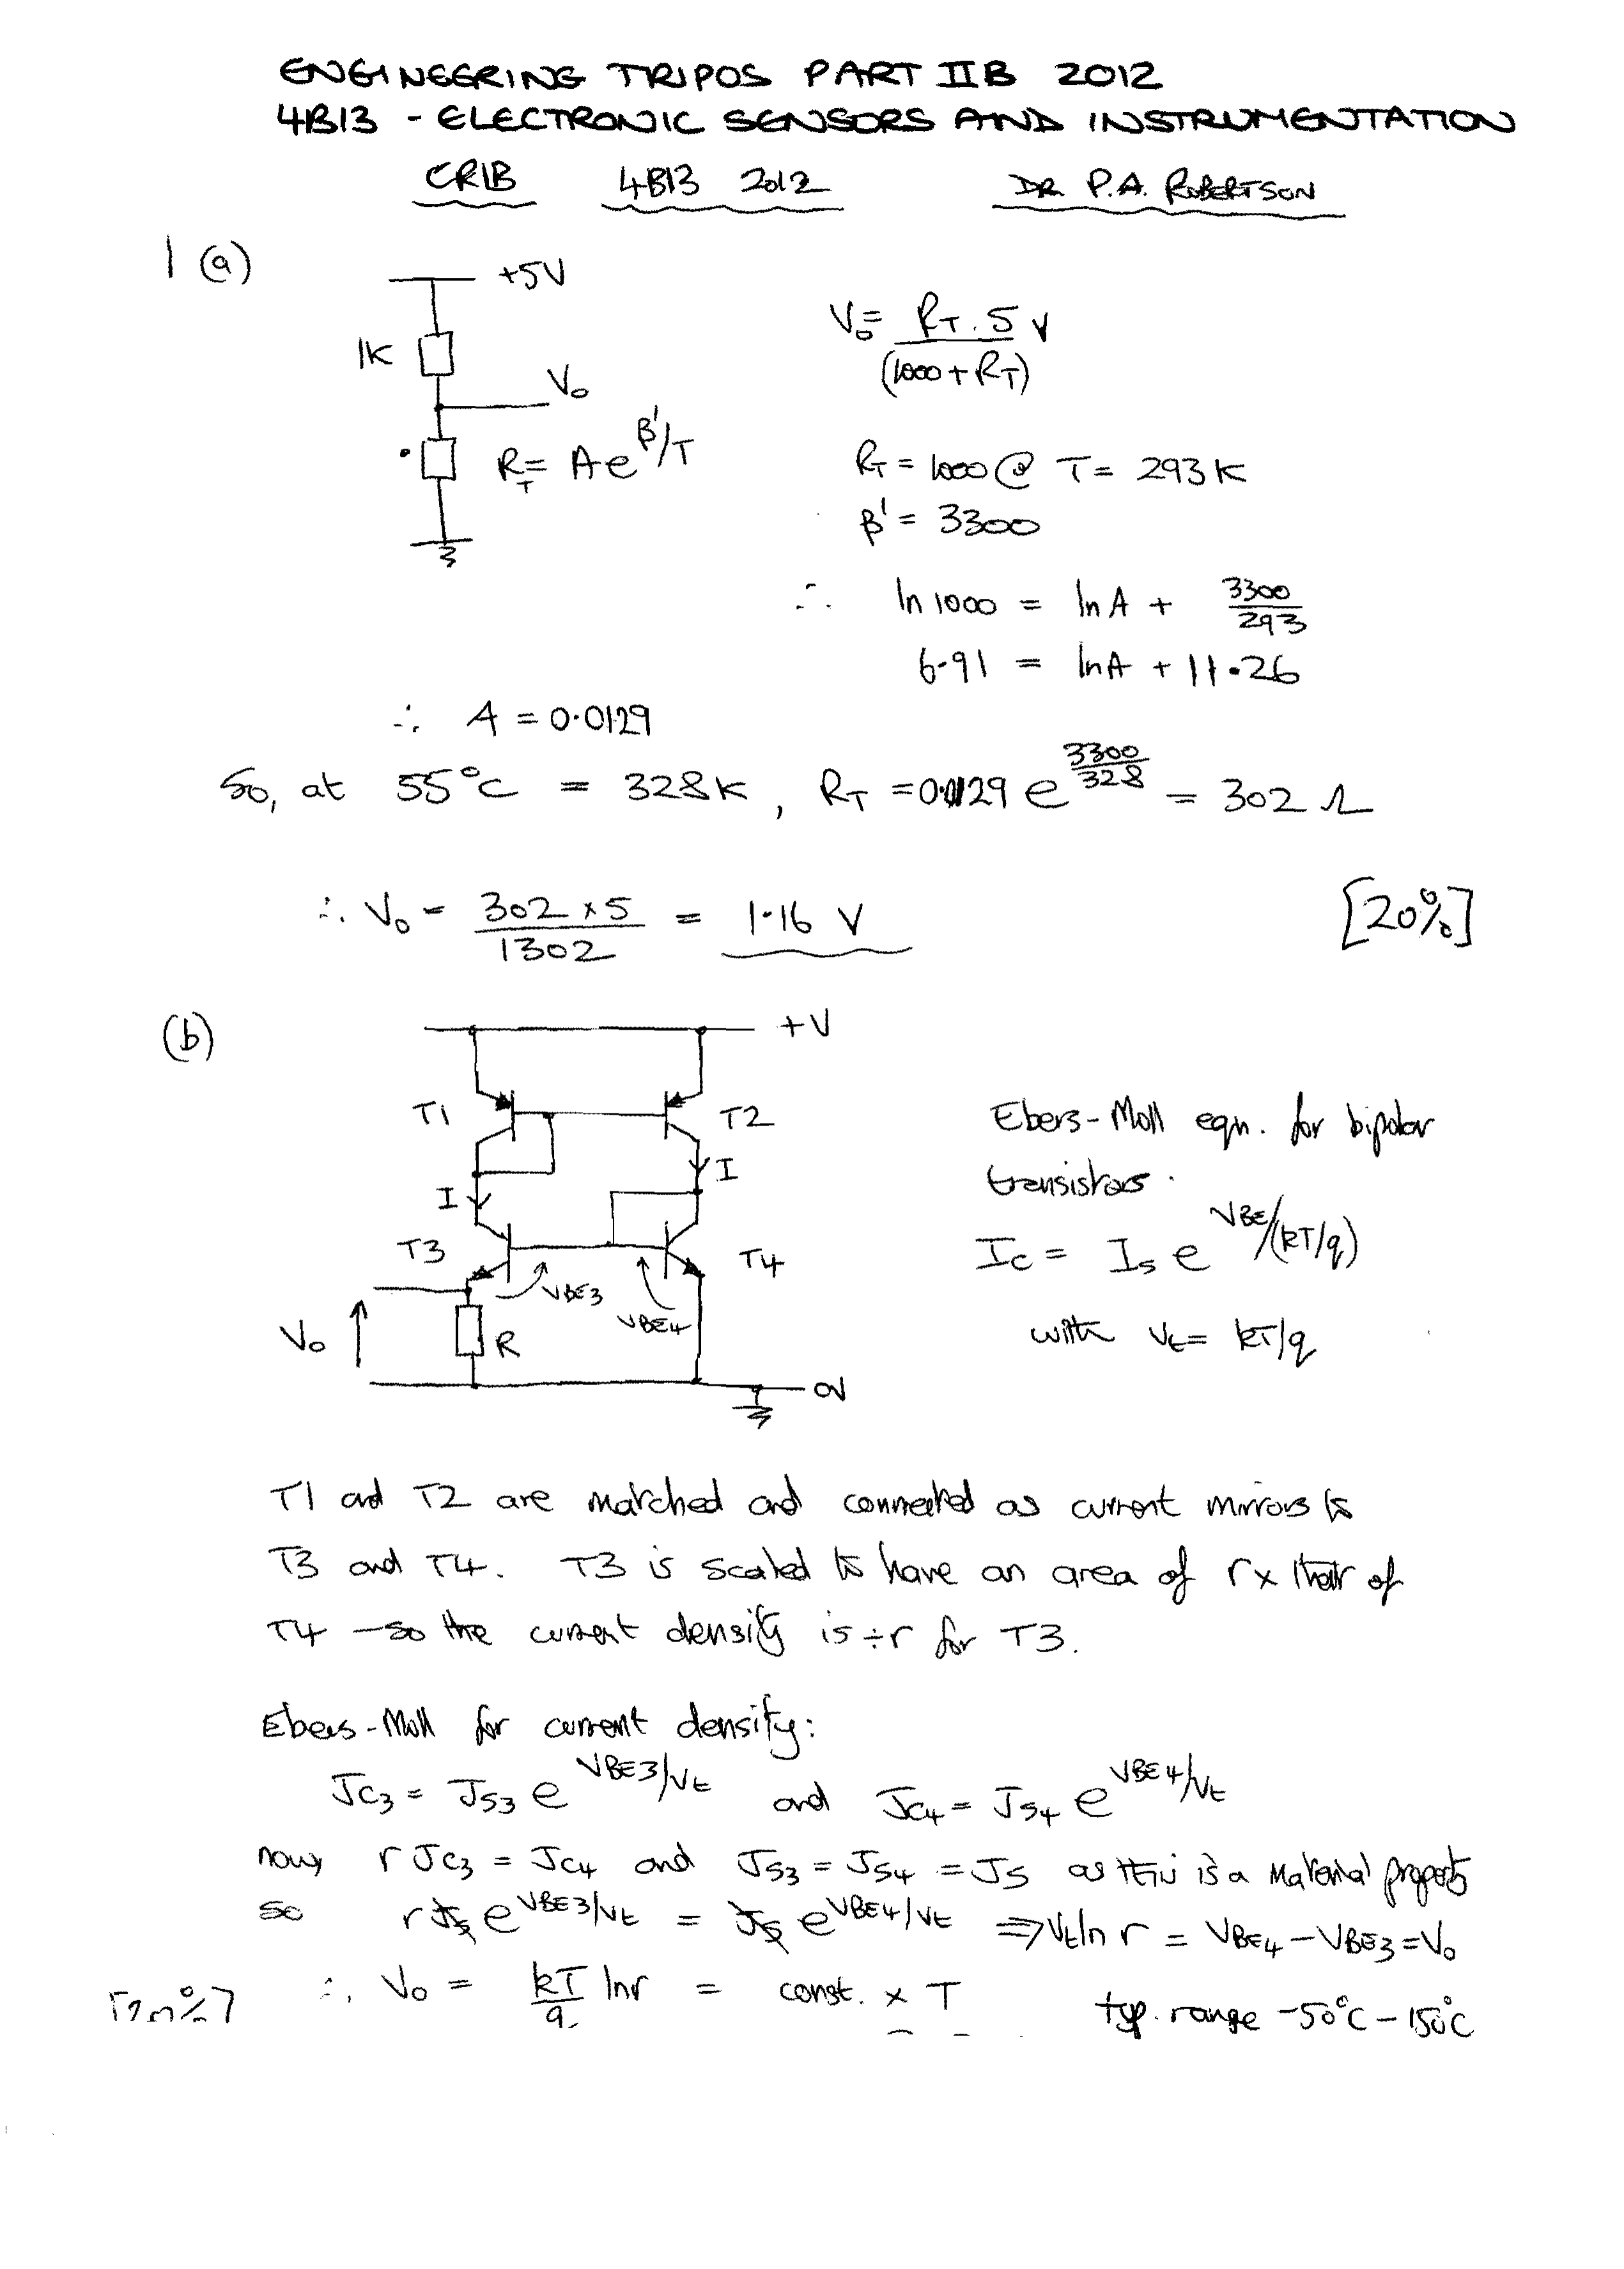 ENGINEERING TRIPOS PART IIB 2012
4B13 - ELECTRONIC SENSORS AND INSTRUMENTATION
CRIB 4B13 2012 DR P.A. ROBERTSON
1 (a)
+5V
1K
V₀
R_T = A e^{β'/T}
V₀ = R_T . 5 / (1000 + R_T) V
R_T = 1000 @ T = 293K
β' = 3300
∴ ln 1000 = ln A + 3300/293
6.91 = ln A + 11.26
∴ A = 0.0129
So, at 55°C = 328K, R_T = 0.0129 e^{3300/328} = 302 Ω
∴ V₀ = 302 × 5 / 1302 = 1.16 V
[20%]
(b)
+V
T1
T2
I
I
T3
T4
VBE3
VBE4
V₀
R
0V
Ebers-Moll eqn. for bipolar
transistors.
I_C = I_S e^{VBE/(kT/q)}
with V_t = kT/q
T1 and T2 are matched and connected as current mirrors to
T3 and T4. T3 is scaled to have an area of r x that of
T4 - so the current density is ÷r for T3.
Ebers-Moll for current density:
J_C3 = J_S3 e^{VBE3/V_t} and J_C4 = J_S4 e^{VBE4/V_t}
now, r J_C3 = J_C4 and J_S3 = J_S4 = J_S as this is a material property
so r J_S e^{VBE3/V_t} = J_S e^{VBE4/V_t} ⇒ V_t ln r = V_BE4 - V_BE3 = V₀
∴ V₀ = kT/q ln r = const. × T
typ. range -50°C - 150°C